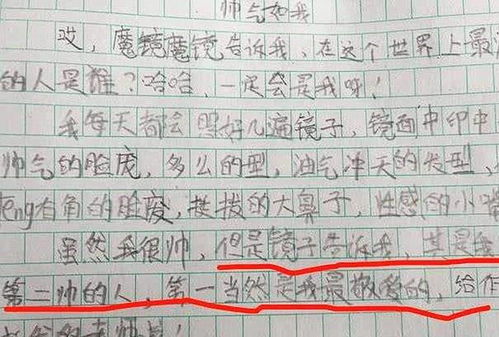 帅气如我
哎，魔镜魔镜告诉我，在这个世界上最
的人是谁？哈哈，一定会是我呀！
我每天都会照好几遍镜子，镜面中印中
帅气的脸庞，多么的型，油气冲天的发型、
leng有角的脸废，挺拔的大鼻子，性感的小嘴
虽然我很帅，但是镜子告诉我，其是我
第二帅的人，第一当然是我最敬爱的，给作